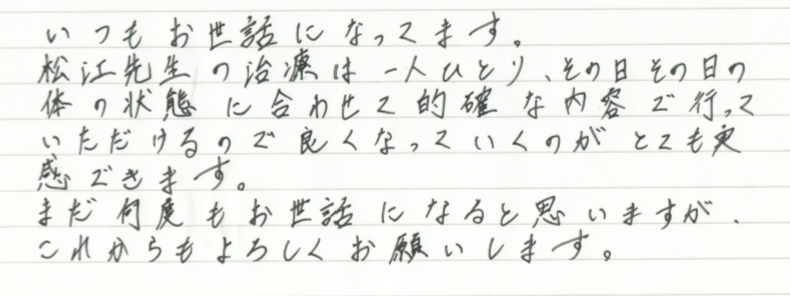 いつもお世話になってます。
松江先生の治療は一人ひとり、その日その日の
体の状態に合わせて的確な内容で行って
いただけるので良くなっていくのがとても実
感できます。
まだ何度もお世話になると思いますが、
これからもよろしくお願いします。